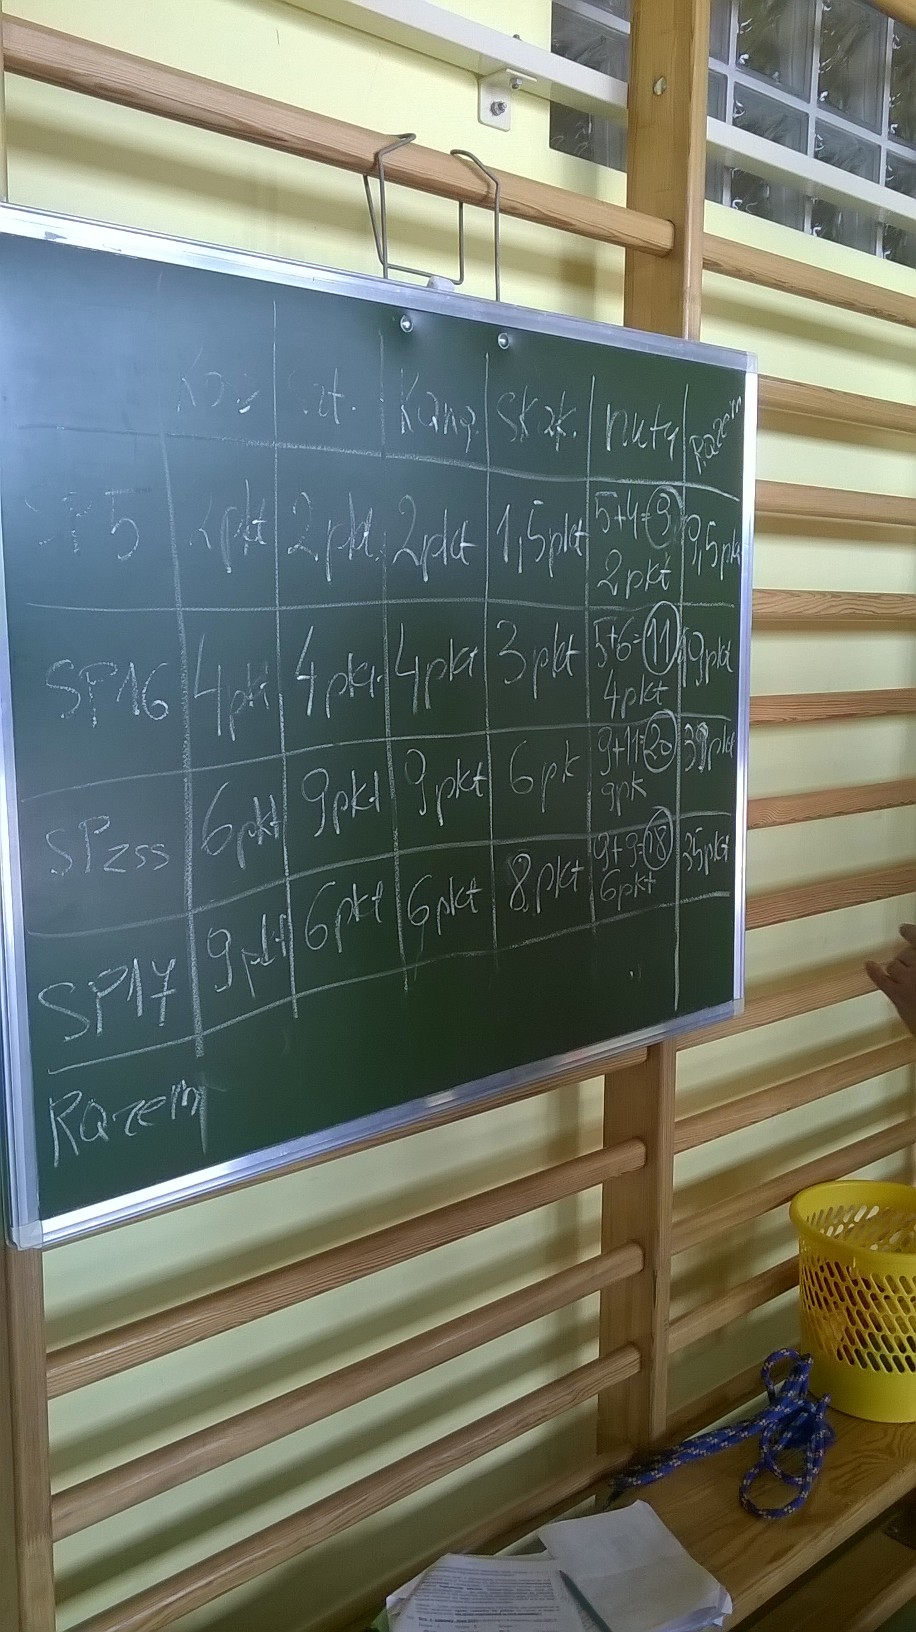 Kosz zt. Kang. Skak. nuty Razem
SP5 2pkt 2pkt. 2pkt 1,5pkt 5+4=9 9,5pkt
2pkt
SP16 4pkt 4pkt. 4pkt 3pkt 5+6=11 19pkt
4pkt
SPzss 6pkt 9pkt 9pkt 6pk 9+11=20 39pkt
9pk
SP17 9pkt 6pkt 6pkt 8pkt 9+9=18 35pkt
6pkt
Razem